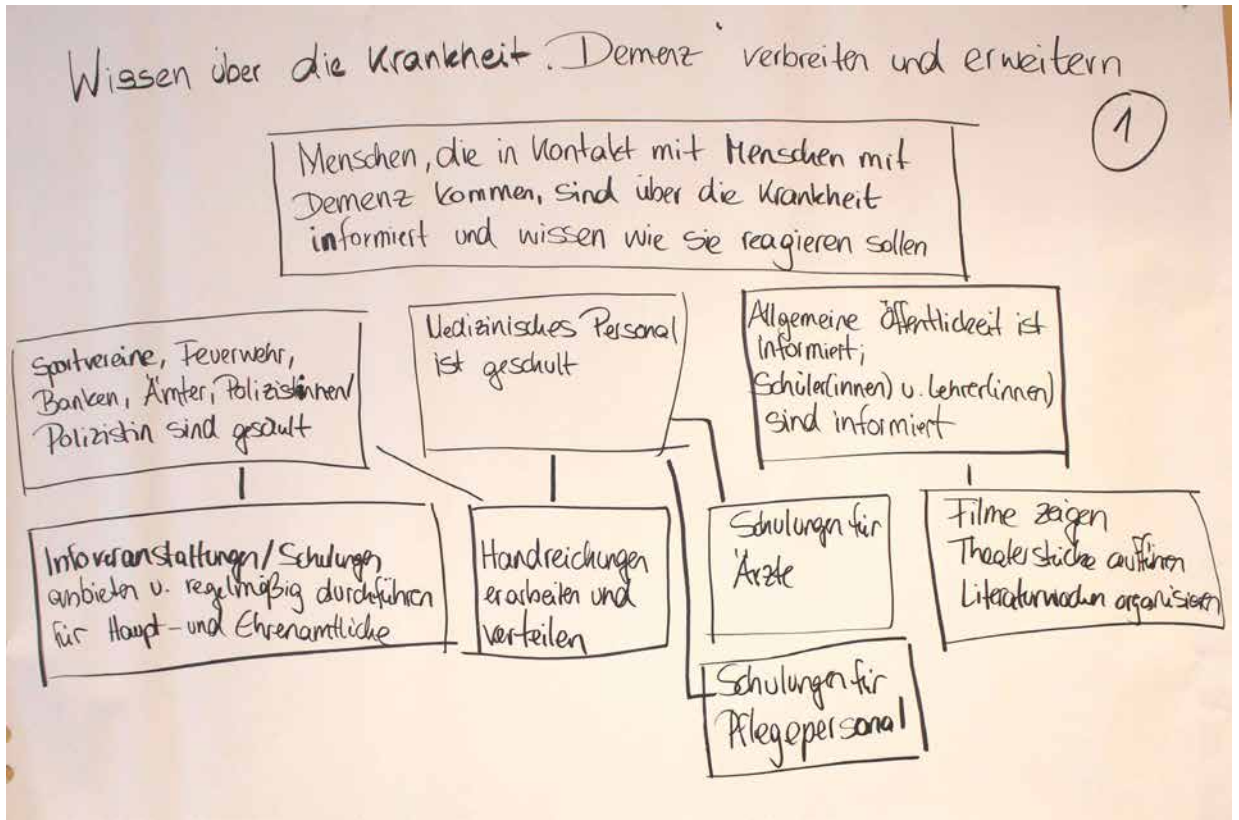 Wissen über die Krankheit "Demenz" verbreiten und erweitern
1
Menschen, die in Kontakt mit Menschen mit
Demenz kommen, sind über die Krankheit
informiert und wissen wie sie reagieren sollen
Sportvereine, Feuerwehr,
Banken, Ämter, Polizistinnen/
Polizistin sind geschult
Medizinisches Personal
ist geschult
Allgemeine Öffentlichkeit ist
informiert;
Schüler(innen) u. Lehrer(innen)
sind informiert
Infoveranstaltungen/Schulungen
anbieten u. regelmäßig durchführen
für Haupt- und Ehrenamtliche
Handreichungen
erarbeiten und
verteilen
Schulungen für
Ärzte
Schulungen für
Pflegepersonal
Filme zeigen
Theaterstücke aufführen
Literaturwochen organisieren